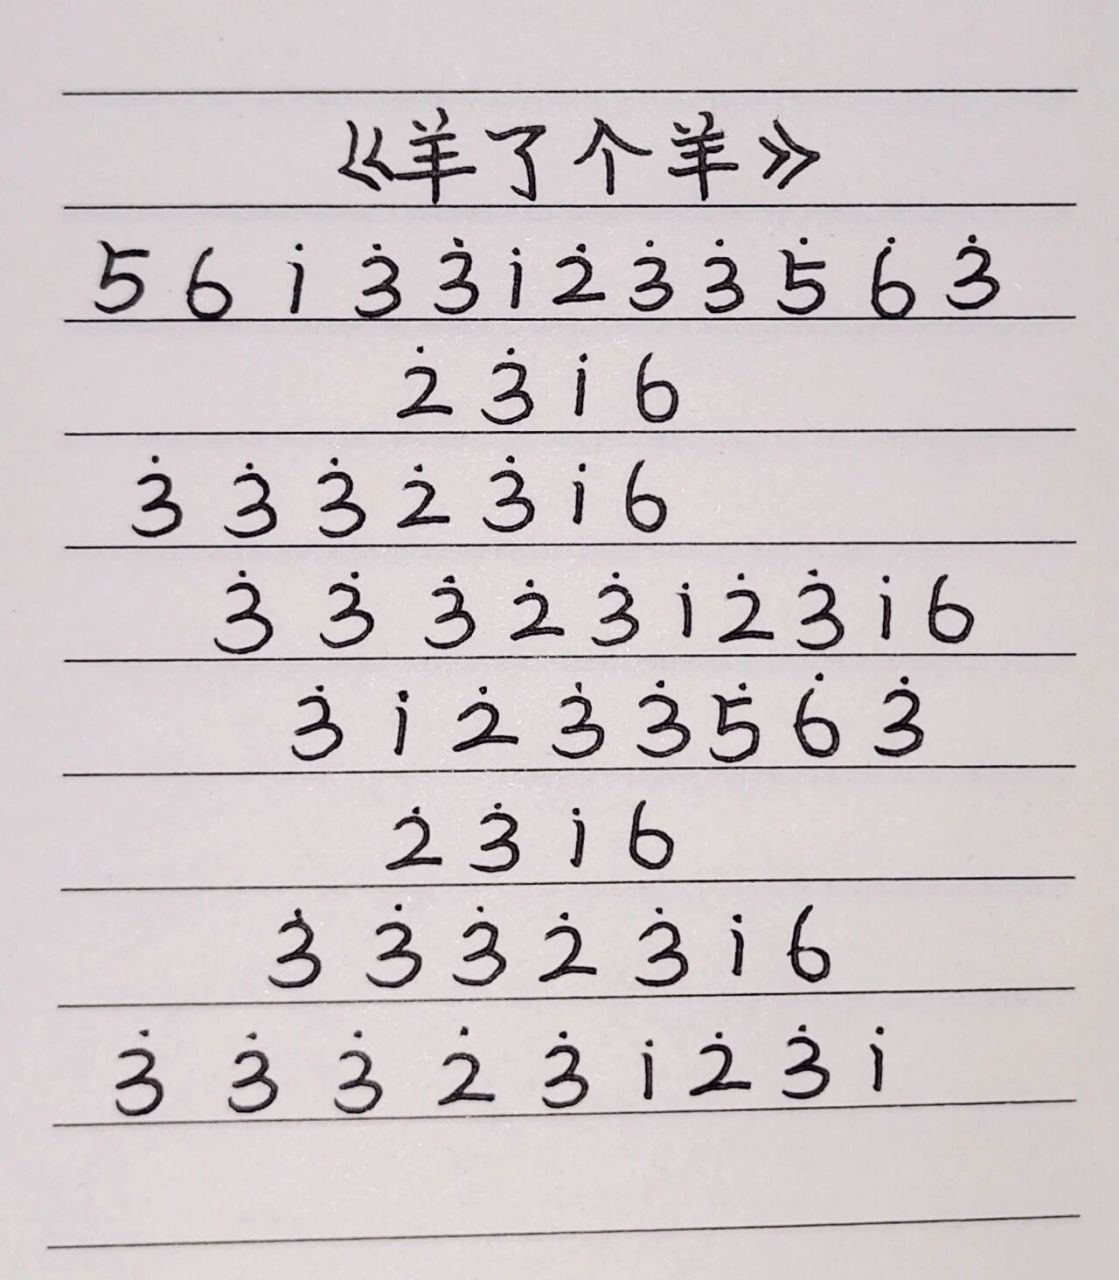 《羊了个羊》
5 6 i 3̇ 3̇ i 2̇ 3̇ 3̇ 5̇ 6̇ 3̇
2̇ 3̇ i 6
3̇ 3̇ 3̇ 2̇ 3̇ i 6
3̇ 3̇ 3̇ 2̇ 3̇ i 2̇ 3̇ i 6
3̇ i 2̇ 3̇ 3̇ 5̇ 6̇ 3̇
2̇ 3̇ i 6
3̇ 3̇ 3̇ 2̇ 3̇ i 6
3̇ 3̇ 3̇ 2̇ 3̇ i 2̇ 3̇ i